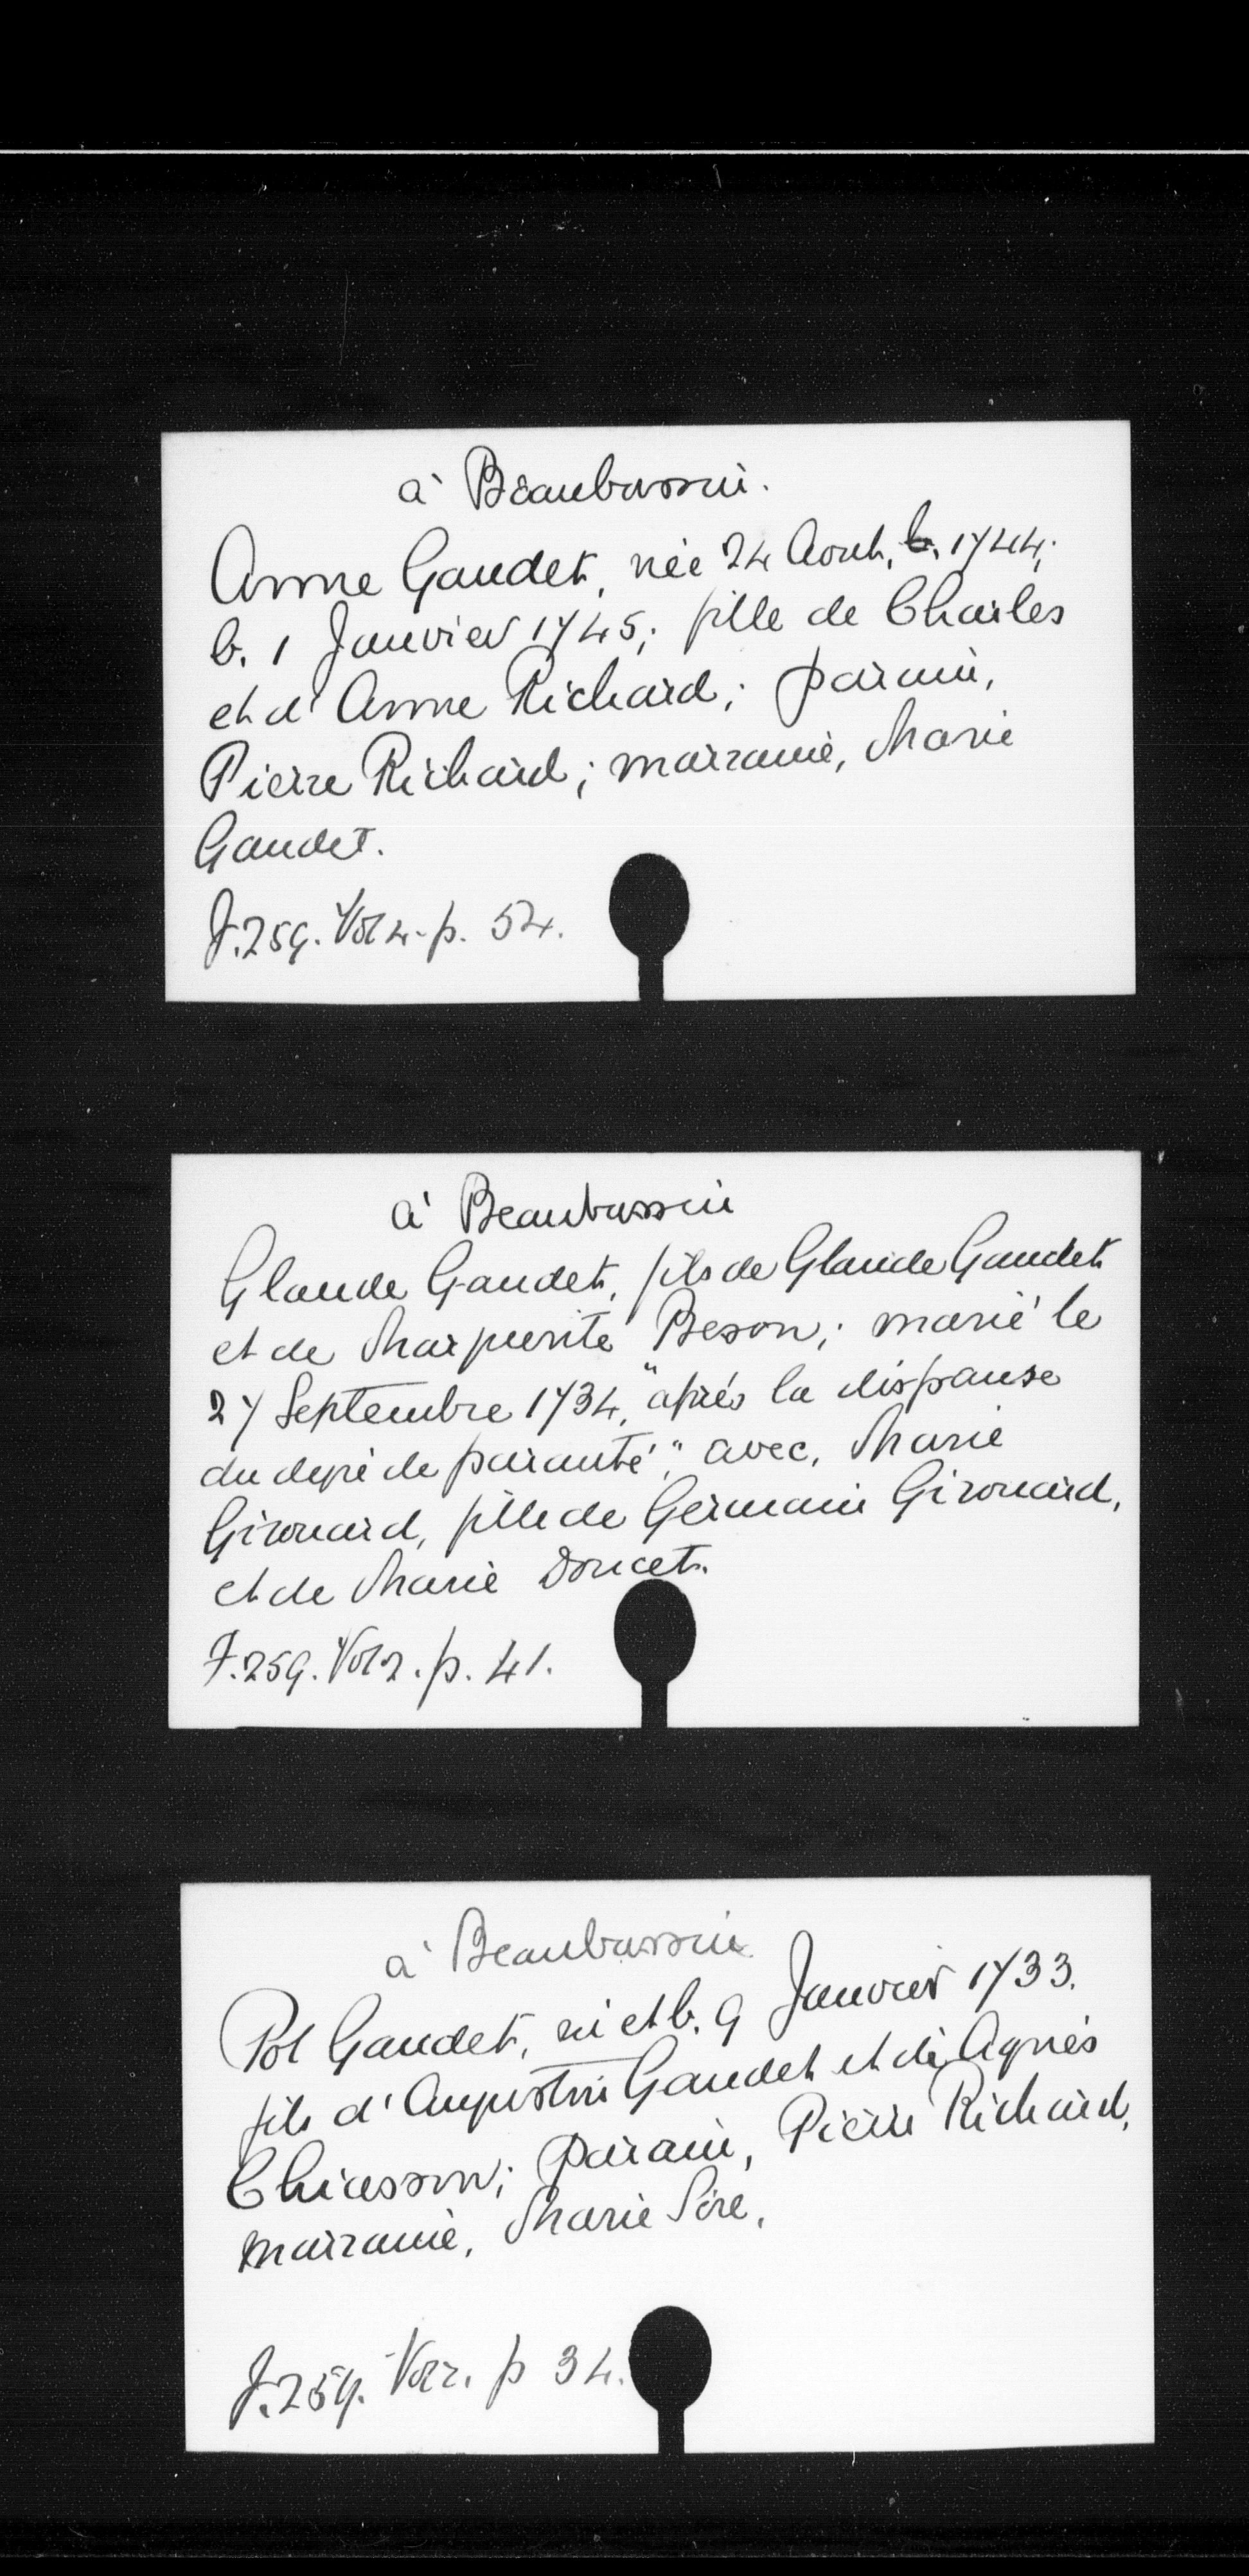 à Beaubassin.
Anne Gaudet, née 24 Aout, b. 1744;
b. 1 Janvier 1745; fille de Charles
et d'Anne Richard; parain,
Pierre Richard; marraine, Marie
Gaudet.
J.259. Vol 4. p. 54.
à Beaubassin
Glaude Gaudet, fils de Glaude Gaudet
et de Marguerite Beson; marié le
27 Septembre 1734, "après la dispanse
du degré de paranté", avec, Marie
Girouard, fille de Germain Girouard,
et de Marie Doucet.
J.259. Vol 2. p. 41.
à Beaubassin
Pol Gaudet, né et b. 9 Janvier 1733.
fils d'Augustin Gaudet et de Agnès
Chiasson; Parain, Pierre Richard,
marraine, Marie Sire,
J.259. Vol 2. p 34.